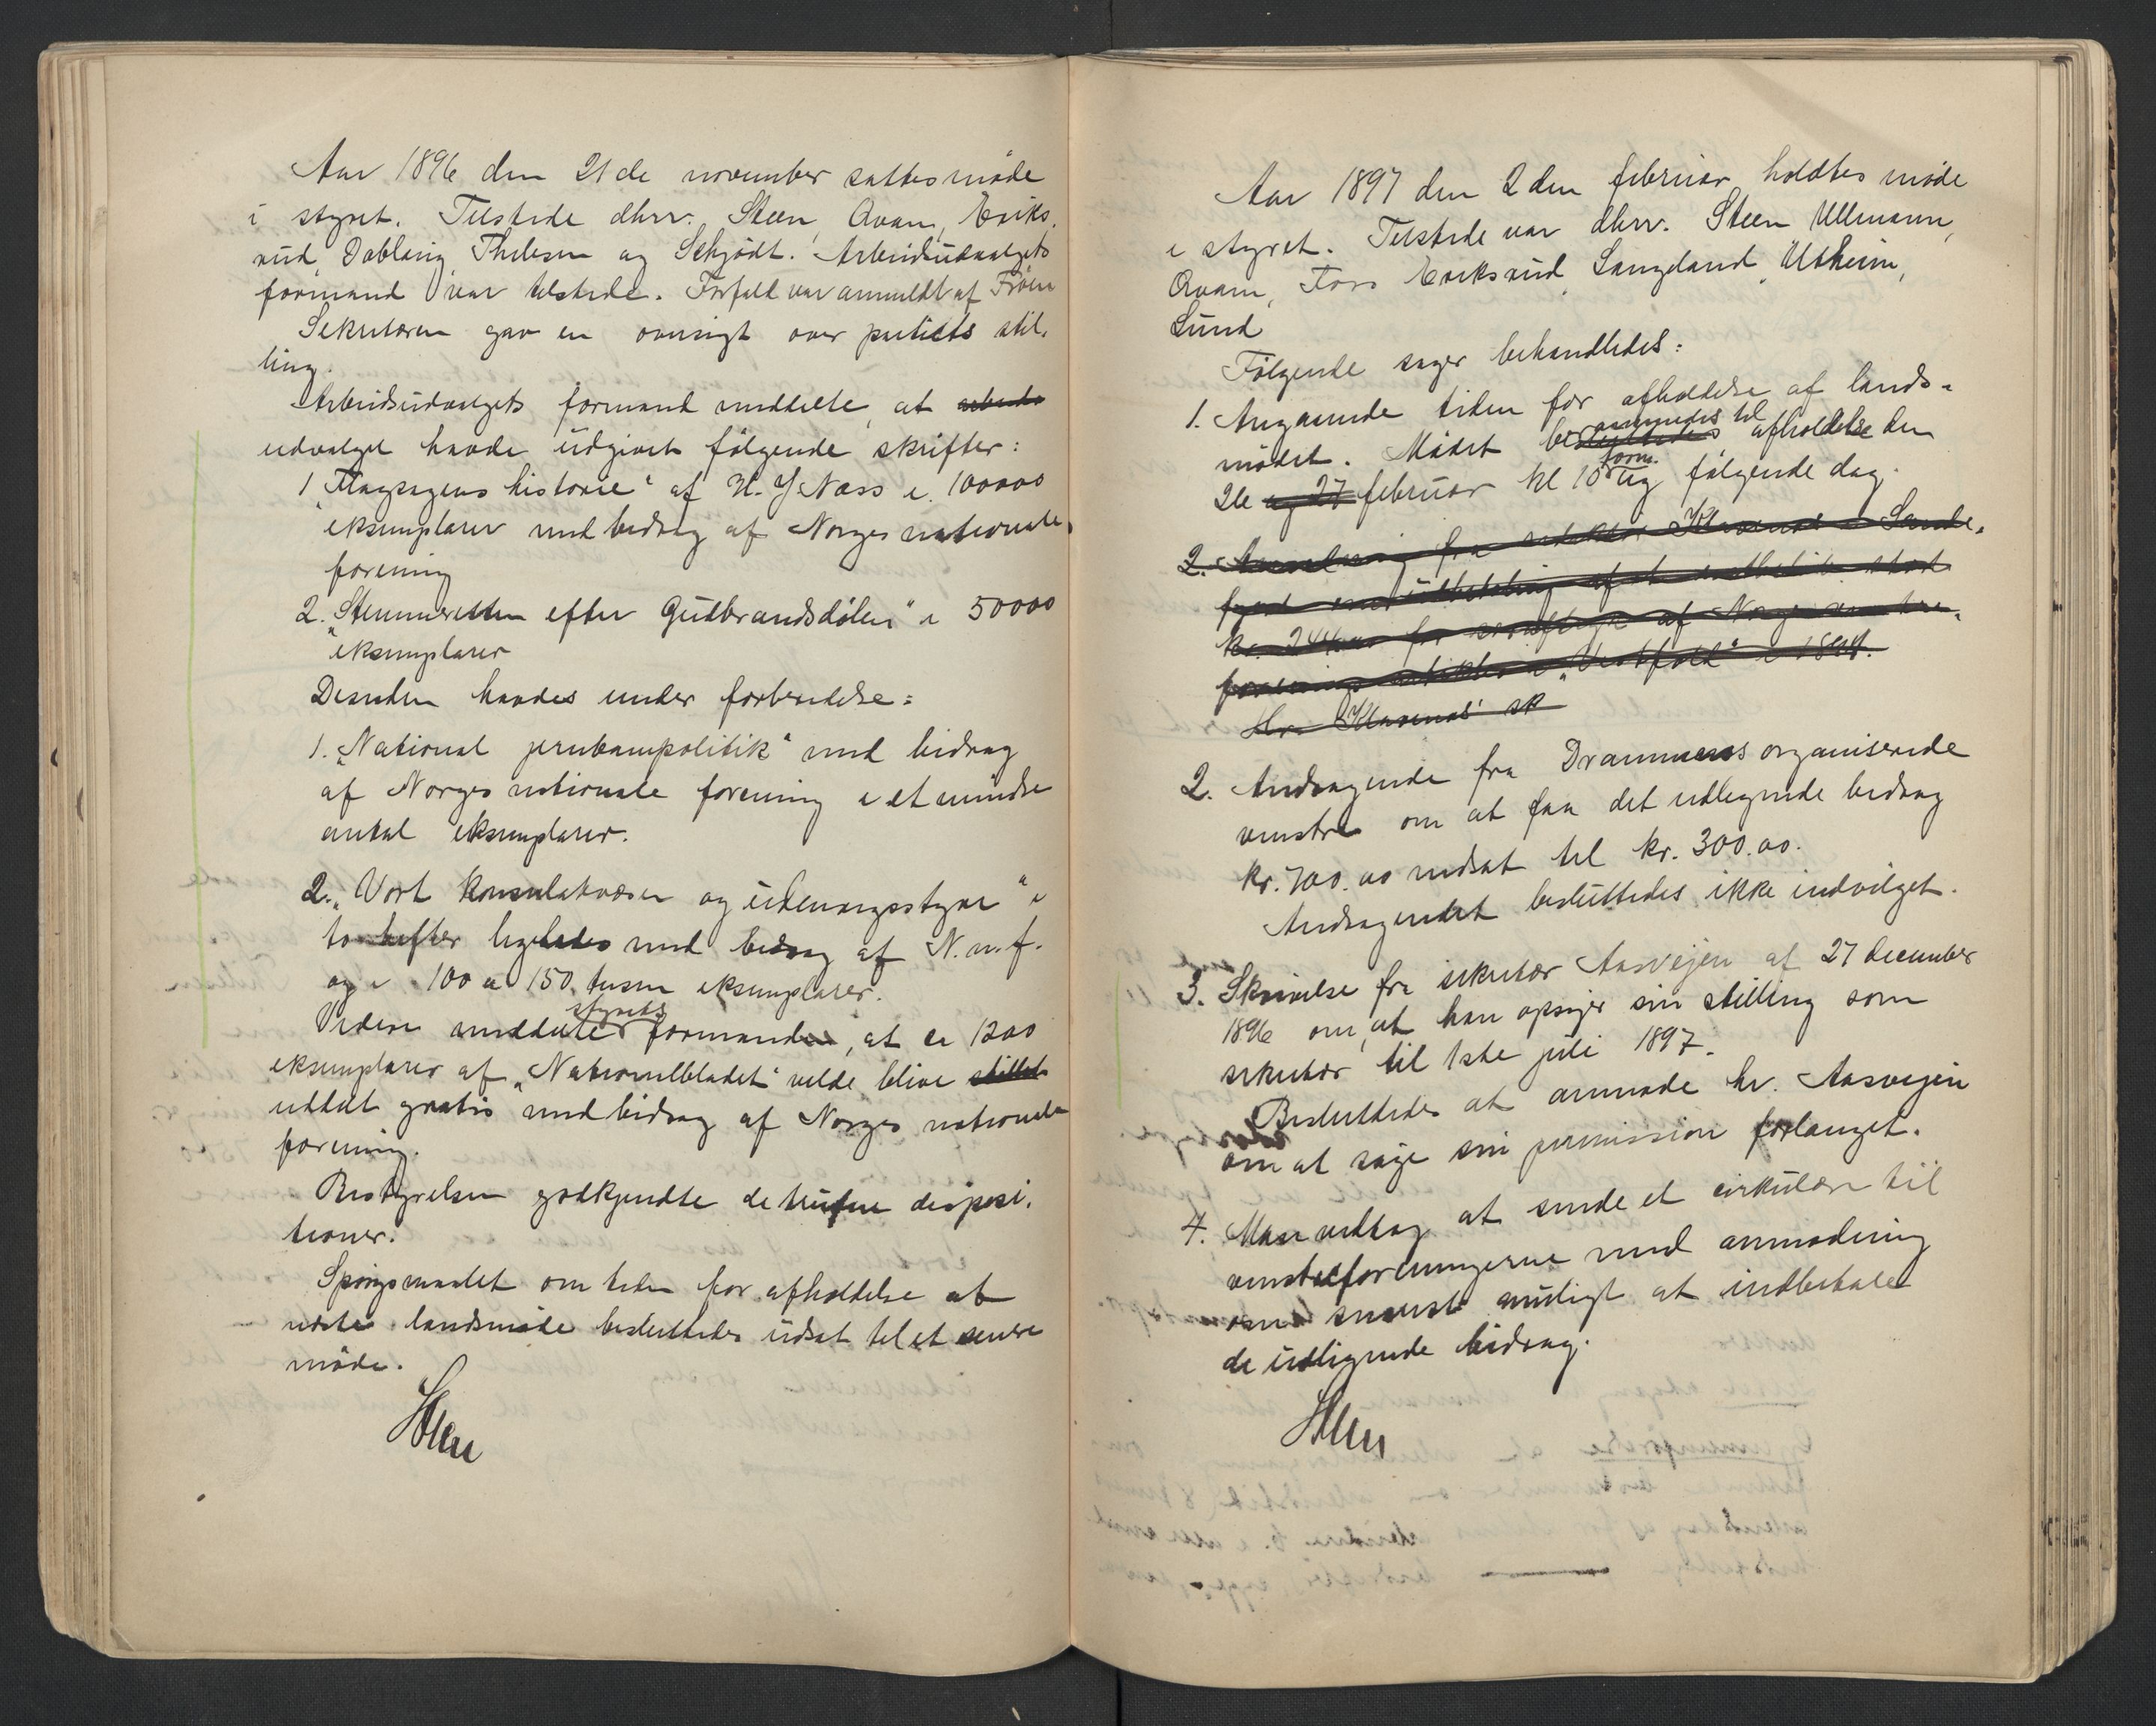 Aar 1896 den 21de november sattes møde
i styret. Tilstede dhrr. Steen, Qvam, Eriks-
rud, Dobloug, Thilesen og Schjødt. Arbeidsudvalgets
formand var tilstede. Forfald var anmeldt af Frøen
Sekretæren gav en oversigt over partiets stil-
ling.
Arbeidsudvalgets formand meddelte, at arbeids
udvalget havde udgivet følgende skrifter:
1 "Flagsagens historie" af H. J Næss i 100000
eksemplarer med bidrag af Norges nationale
forening
2. "Stemmeretten efter Gudbrandsdølen" i 50000
eksemplarer
Desuden havdes under forberedelse:
1. "National jernbanepolitik" med bidrag
af Norges nationale forening i et mindre
antal eksemplarer.
2. "Vort konsulatvæsen og udenrigsstyre" i
to hefter ligeledes med bidrag af N. n. f.
og i 100 a 150 tusen eksemplarer.
Videre meddelte styrets formanden, at ca 1200
eksemplarer af "Nationalbladet" vilde blive stillet
uddelt gratis med bidrag af Norges nationale
forening.
Bestyrelsen godkjendte de trufne disposi-
tioner.
Spørgsmaalet om tiden for afholdelse af
næste landsmøde besluttedes udsat til et senere
møde.
Steen
Aar 1897 den 2den februar holdtes møde
i styret. Tilstede var dhrr. Steen, Ullmann,
Qvam, Foss, Eriksrud, Langeland, Utheim,
Lund
Følgende sager behandledes:
1. Angaaende tiden for afholdelse af lands-
mødet. Mødet berammedes til afholdelse den
26 og 27 februar kl 10 form. og følgende dag.
2. fra redaktør Klavenæs i Sande-
fjord om af
kr. 244.00 for af Norges
forenings artikler i "Vestfold" i 1894.
Hr. Klavenæs
2. Andragende fra Drammens organiserede
venstre om at faa det udlignede bidrag
kr. 700.00 nedsat til kr. 300.00.
Andragendet besluttedes ikke indvilget.
3. Skrivelse fra sekretær Aasvejen af 27 december
1896 om, at han opsiger sin stilling som
sekretær til 1ste juli 1897.
Besluttedes at anmode hr. Aasvejen
om at søge sin permission forlænget.
4. Man vedtog at sende et cirkulære til
venstreforeningerne med anmodning
om snarest muligt at indbetale
de udlignede bidrag.
Steen